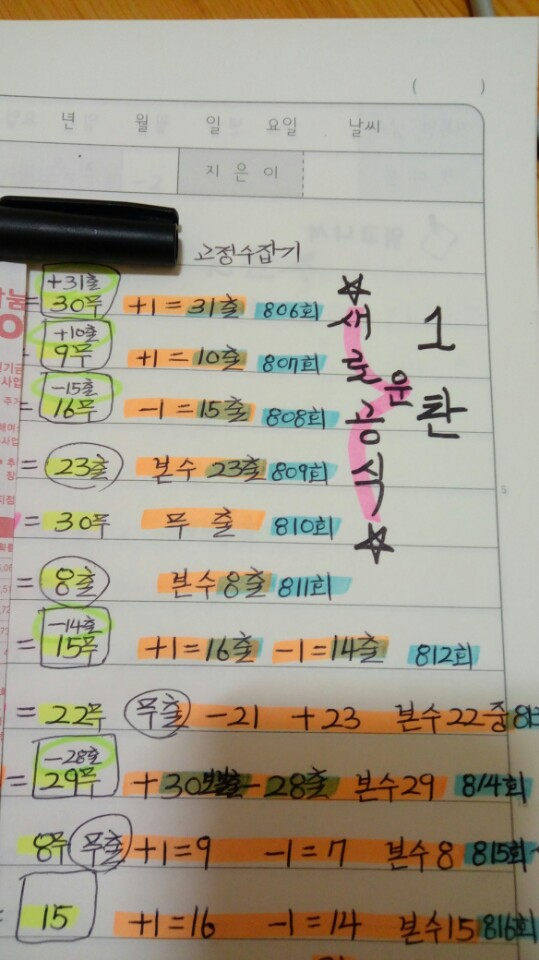 ( )
년 월 일 요일 날씨
지은이
고정수잡기
+31출
= 30무 +1=31출 806회
+10출
= 9무 +1=10출 807회
-15출
= 16무 -1=15출 808회
= 23출 본수 23출 809회
= 30무 무출 810회
= 8출 본수8출 811회
-14출
= 15무 +1=16출 -1=14출 812회
= 22무 무출 -21 +23 본수22중
-28출
= 29무 +30 -28출 본수29 814회
8무 무출 +1=9 -1=7 본수8 815회
= 15 +1=16 -1=14 본수15 816회
☆새로운공식☆
1탄
5